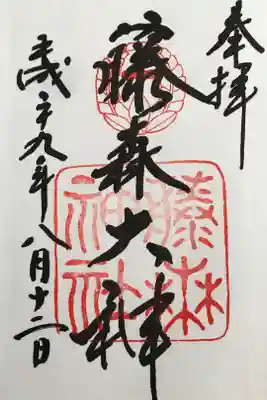 奉拝
藤森大神
平成二十九年八月十二日
藤森
神社